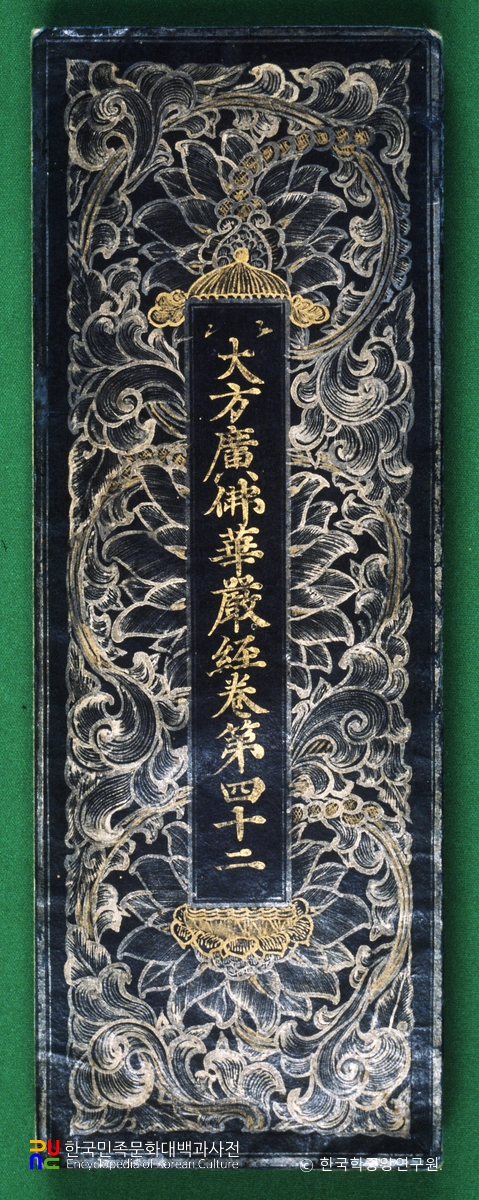 大方廣佛華嚴經卷第四十二
한국민족문화대백과사전
Encyclopedia of Korean Culture
© 한국학중앙연구원